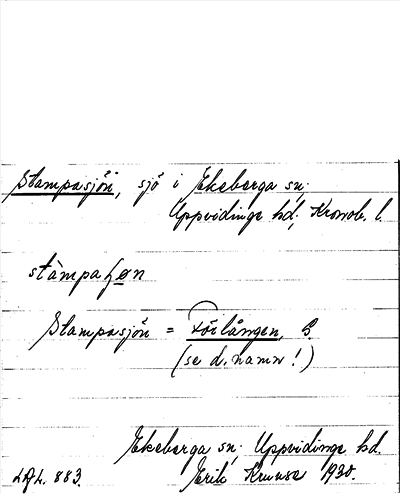 Stampasjön, sjö i Ekeberga sn;
Uppvidinge hd; Kronob. l.
stàmpaʃøn
Stampasjön = Törlången, S.
(se d. namn!)
Ekeberga sn; Uppvidinge hd.
LAL. 883. Erik Kruuse 1930.